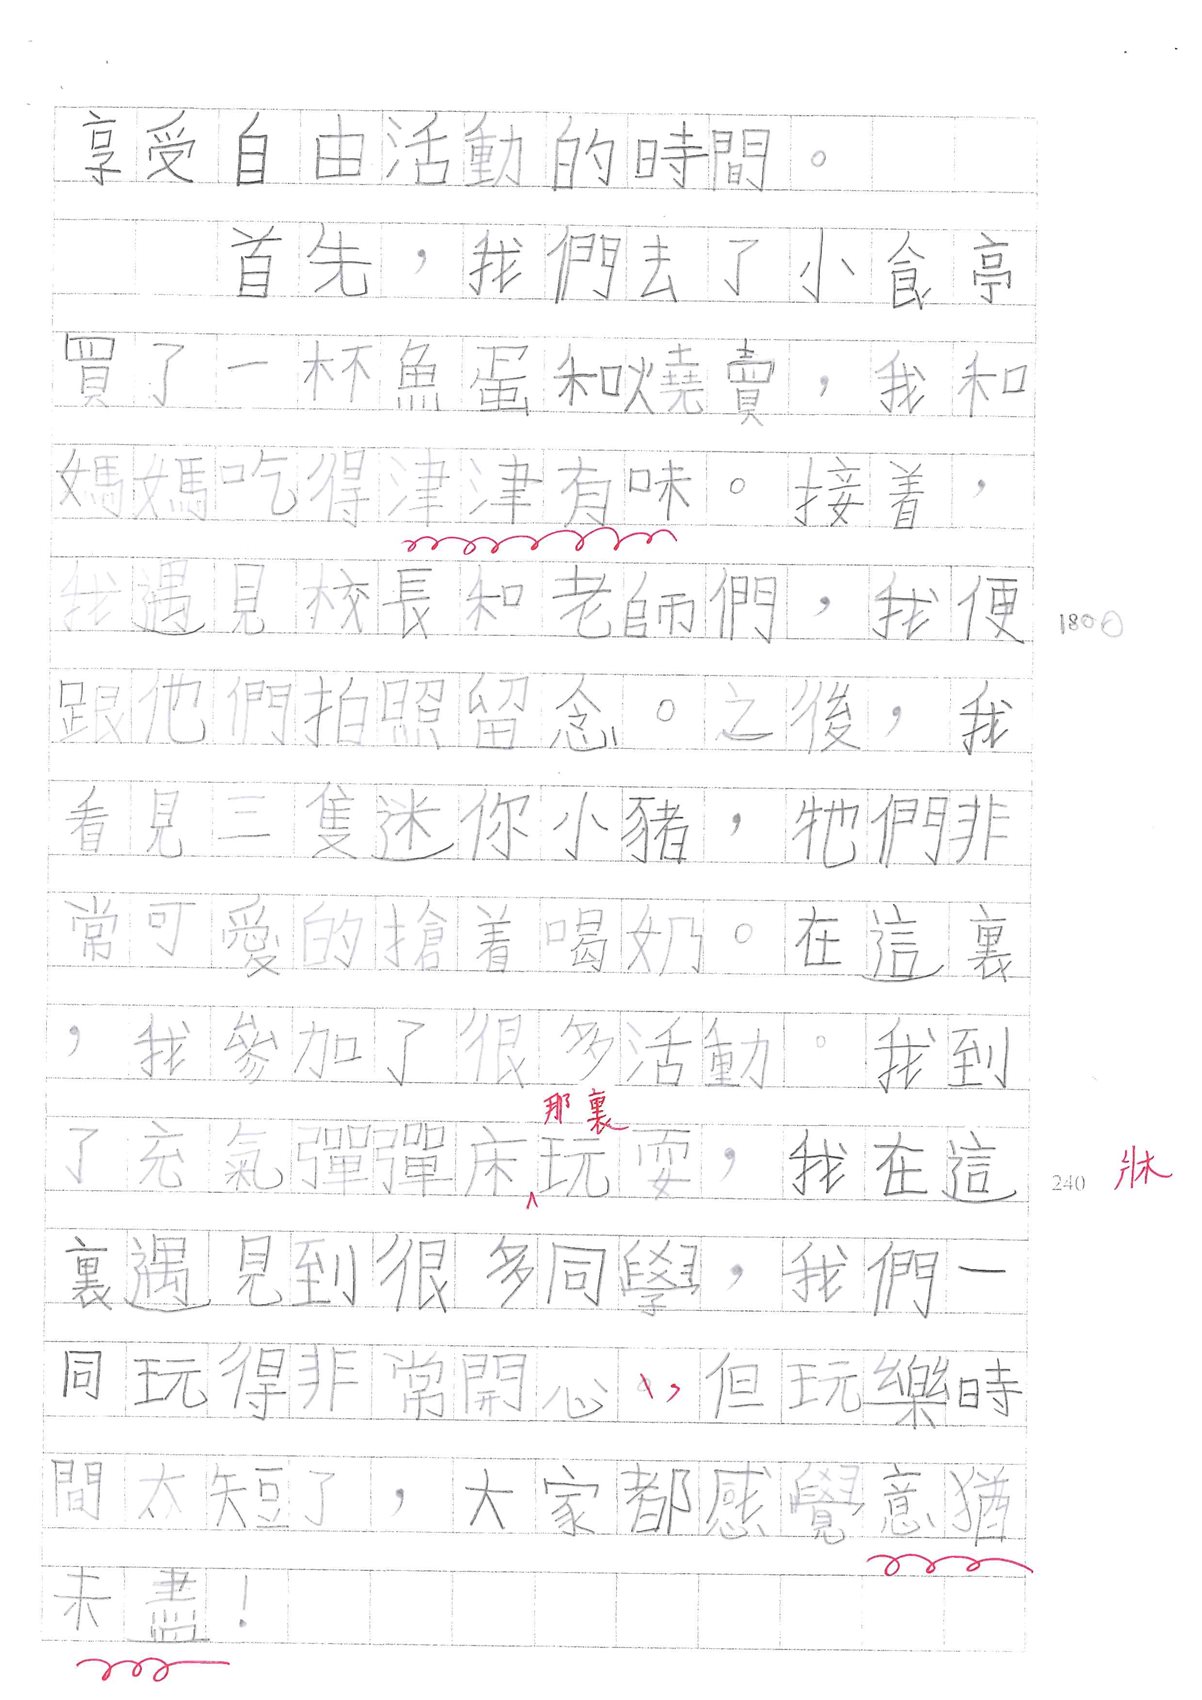 享受自由活動的時間。
首先，我們去了小食亭
買了一杯魚蛋和燒賣，我和
媽媽吃得津津有味。接着，
我遇見校長和老師們，我便
180
跟他們拍照留念。之後，我
看見三隻迷你小豬，牠們非
常可愛的搶着喝奶。在這裏
，我參加了很多活動。我到
那裏
了充氣彈彈床玩耍，我在這
240
牀
裏遇見到很多同學，我們一
同玩得非常開心。，但玩樂時
間太短了，大家都感覺意猶
未盡！